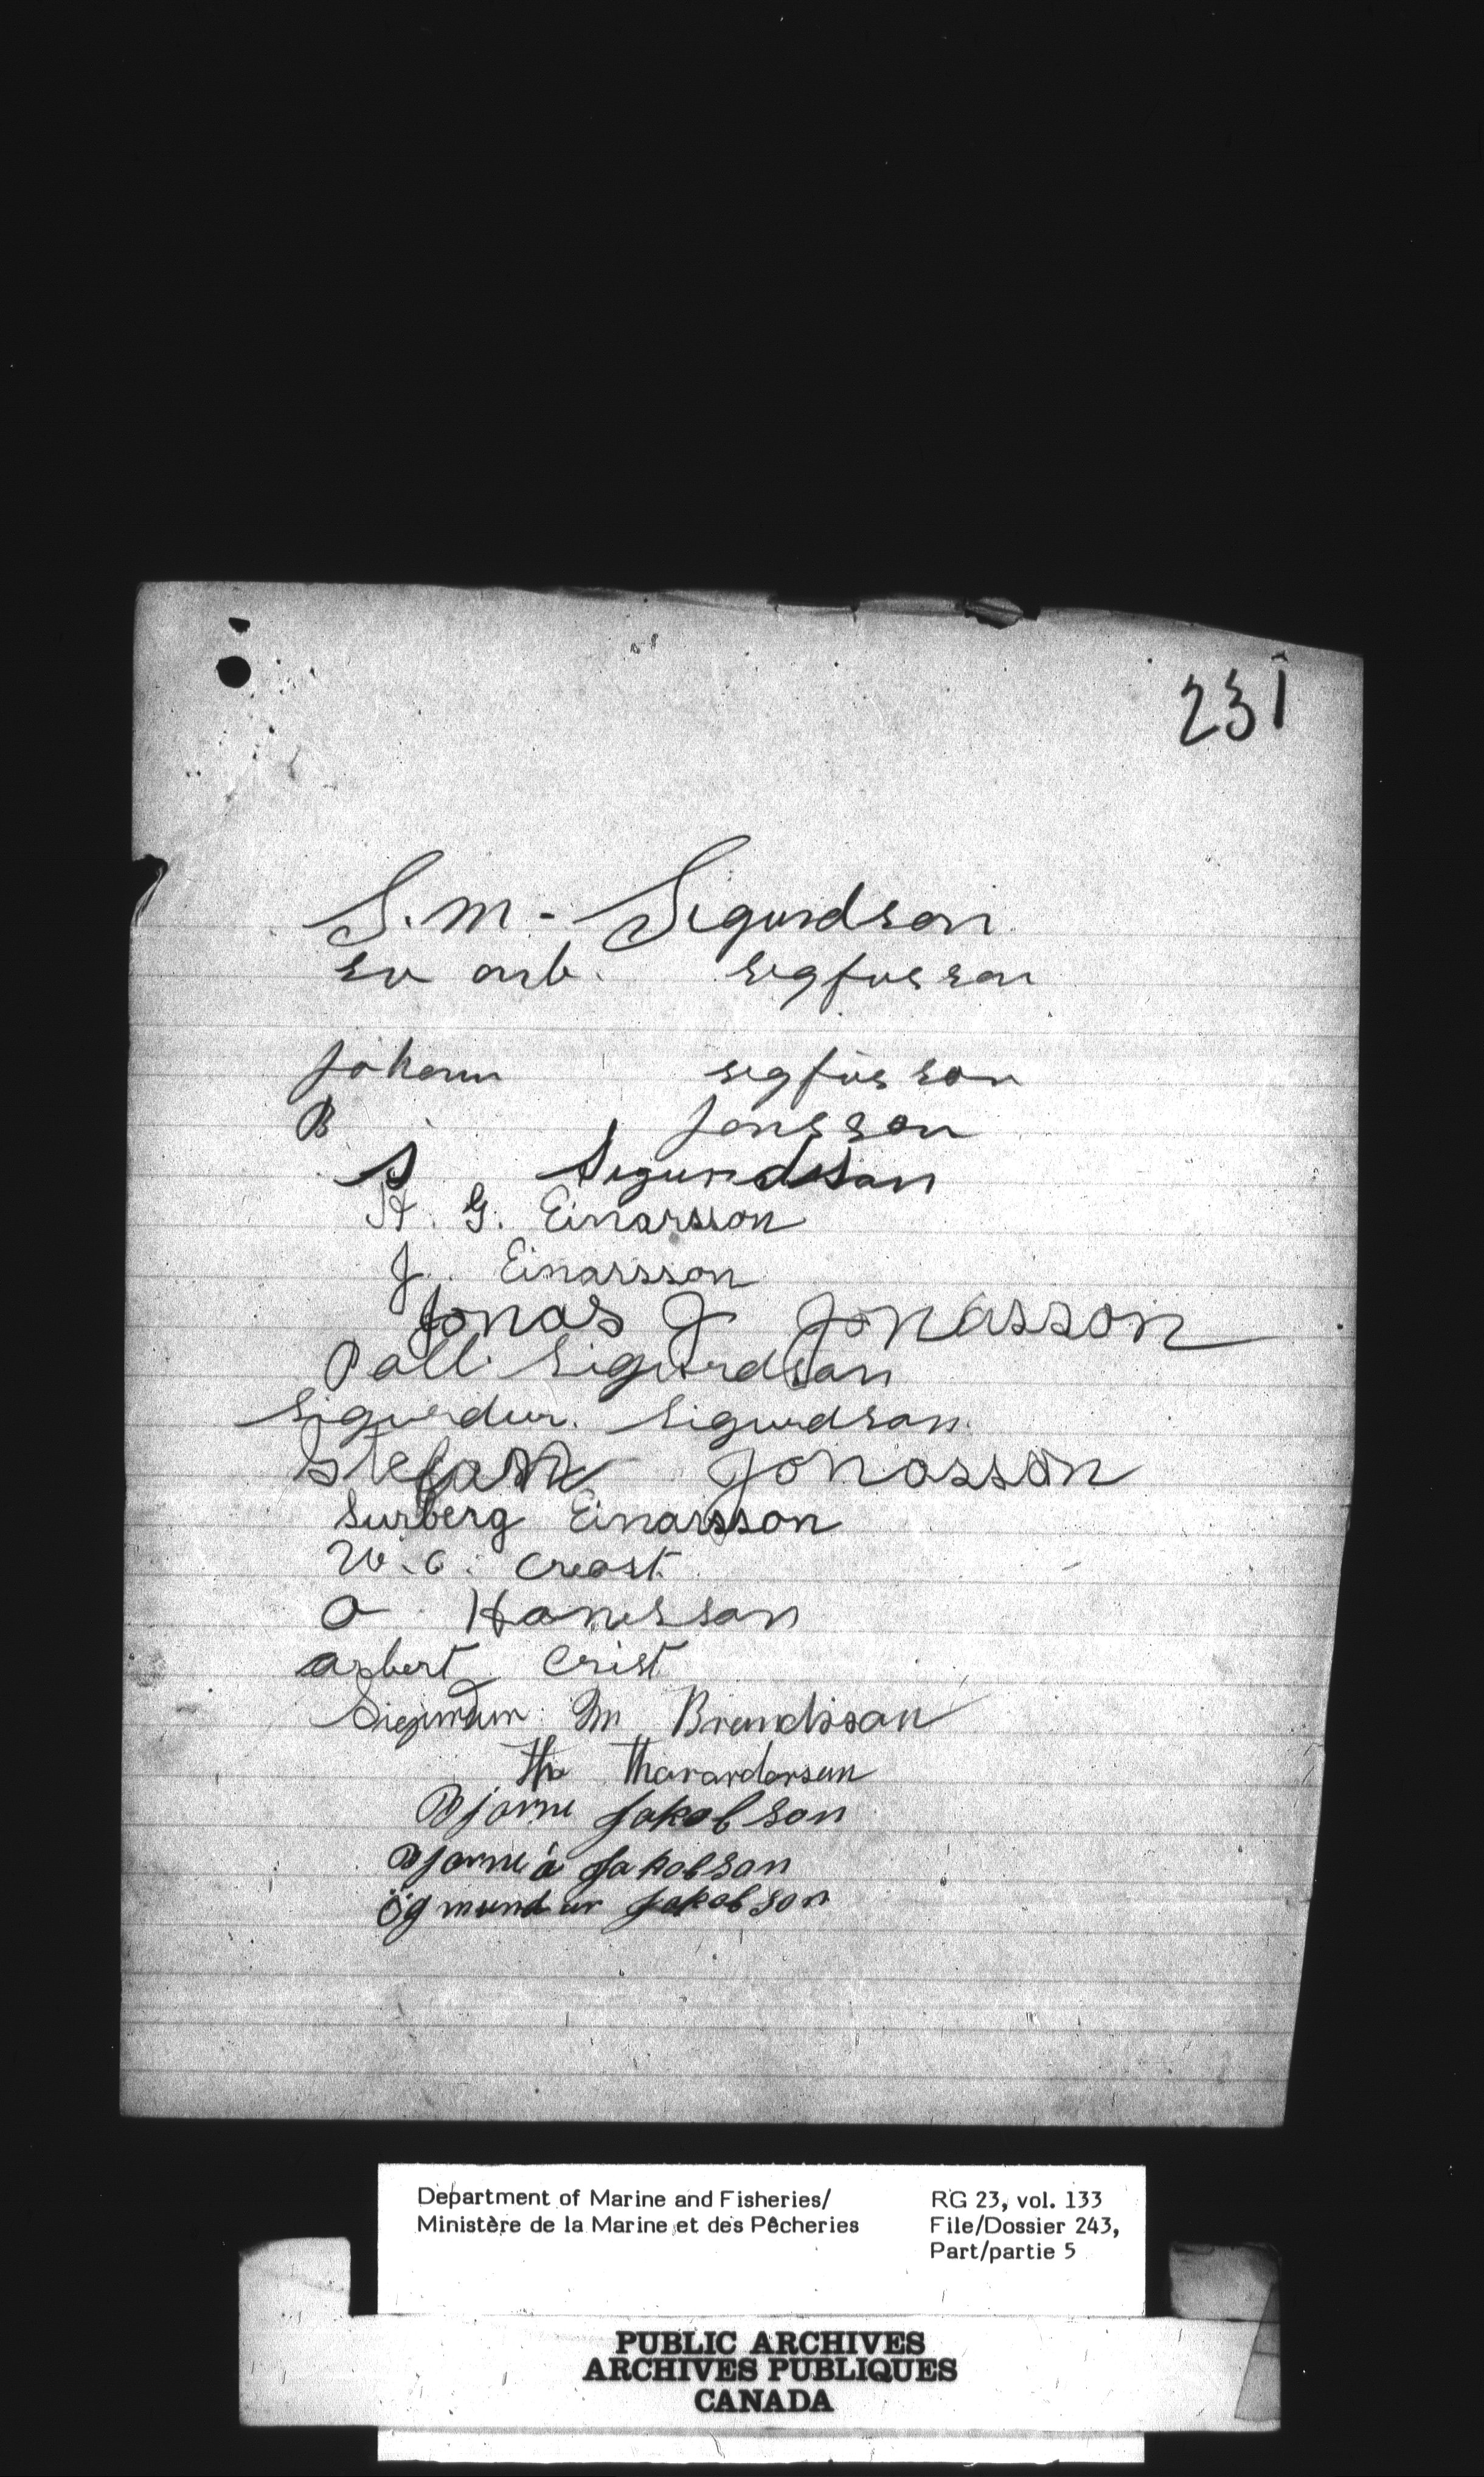 231
S. M - Sigurdson
sv arb. sigfusson
Johann sigfússon
B Jonsson
S Sigurdsson
H. G. Einarsson
J. Einarsson
Jonas J Jonasson
Pall Sigurdson
Sigurdur. Sigurdson
Stefan Jonasson
Surberg Einarsson
W. C. Creost
O Hanesson
arbert Crist
Sigurdur M Brandsson
Th Thorardarson
Bjarni Jakobson
Bjarni á Jakobson
Ögmundur Jakobson
Department of Marine and Fisheries/ RG 23, vol. 133
Ministère de la Marine et des Pêcheries File/Dossier 243,
Part/partie 5
PUBLIC ARCHIVES
ARCHIVES PUBLIQUES
CANADA